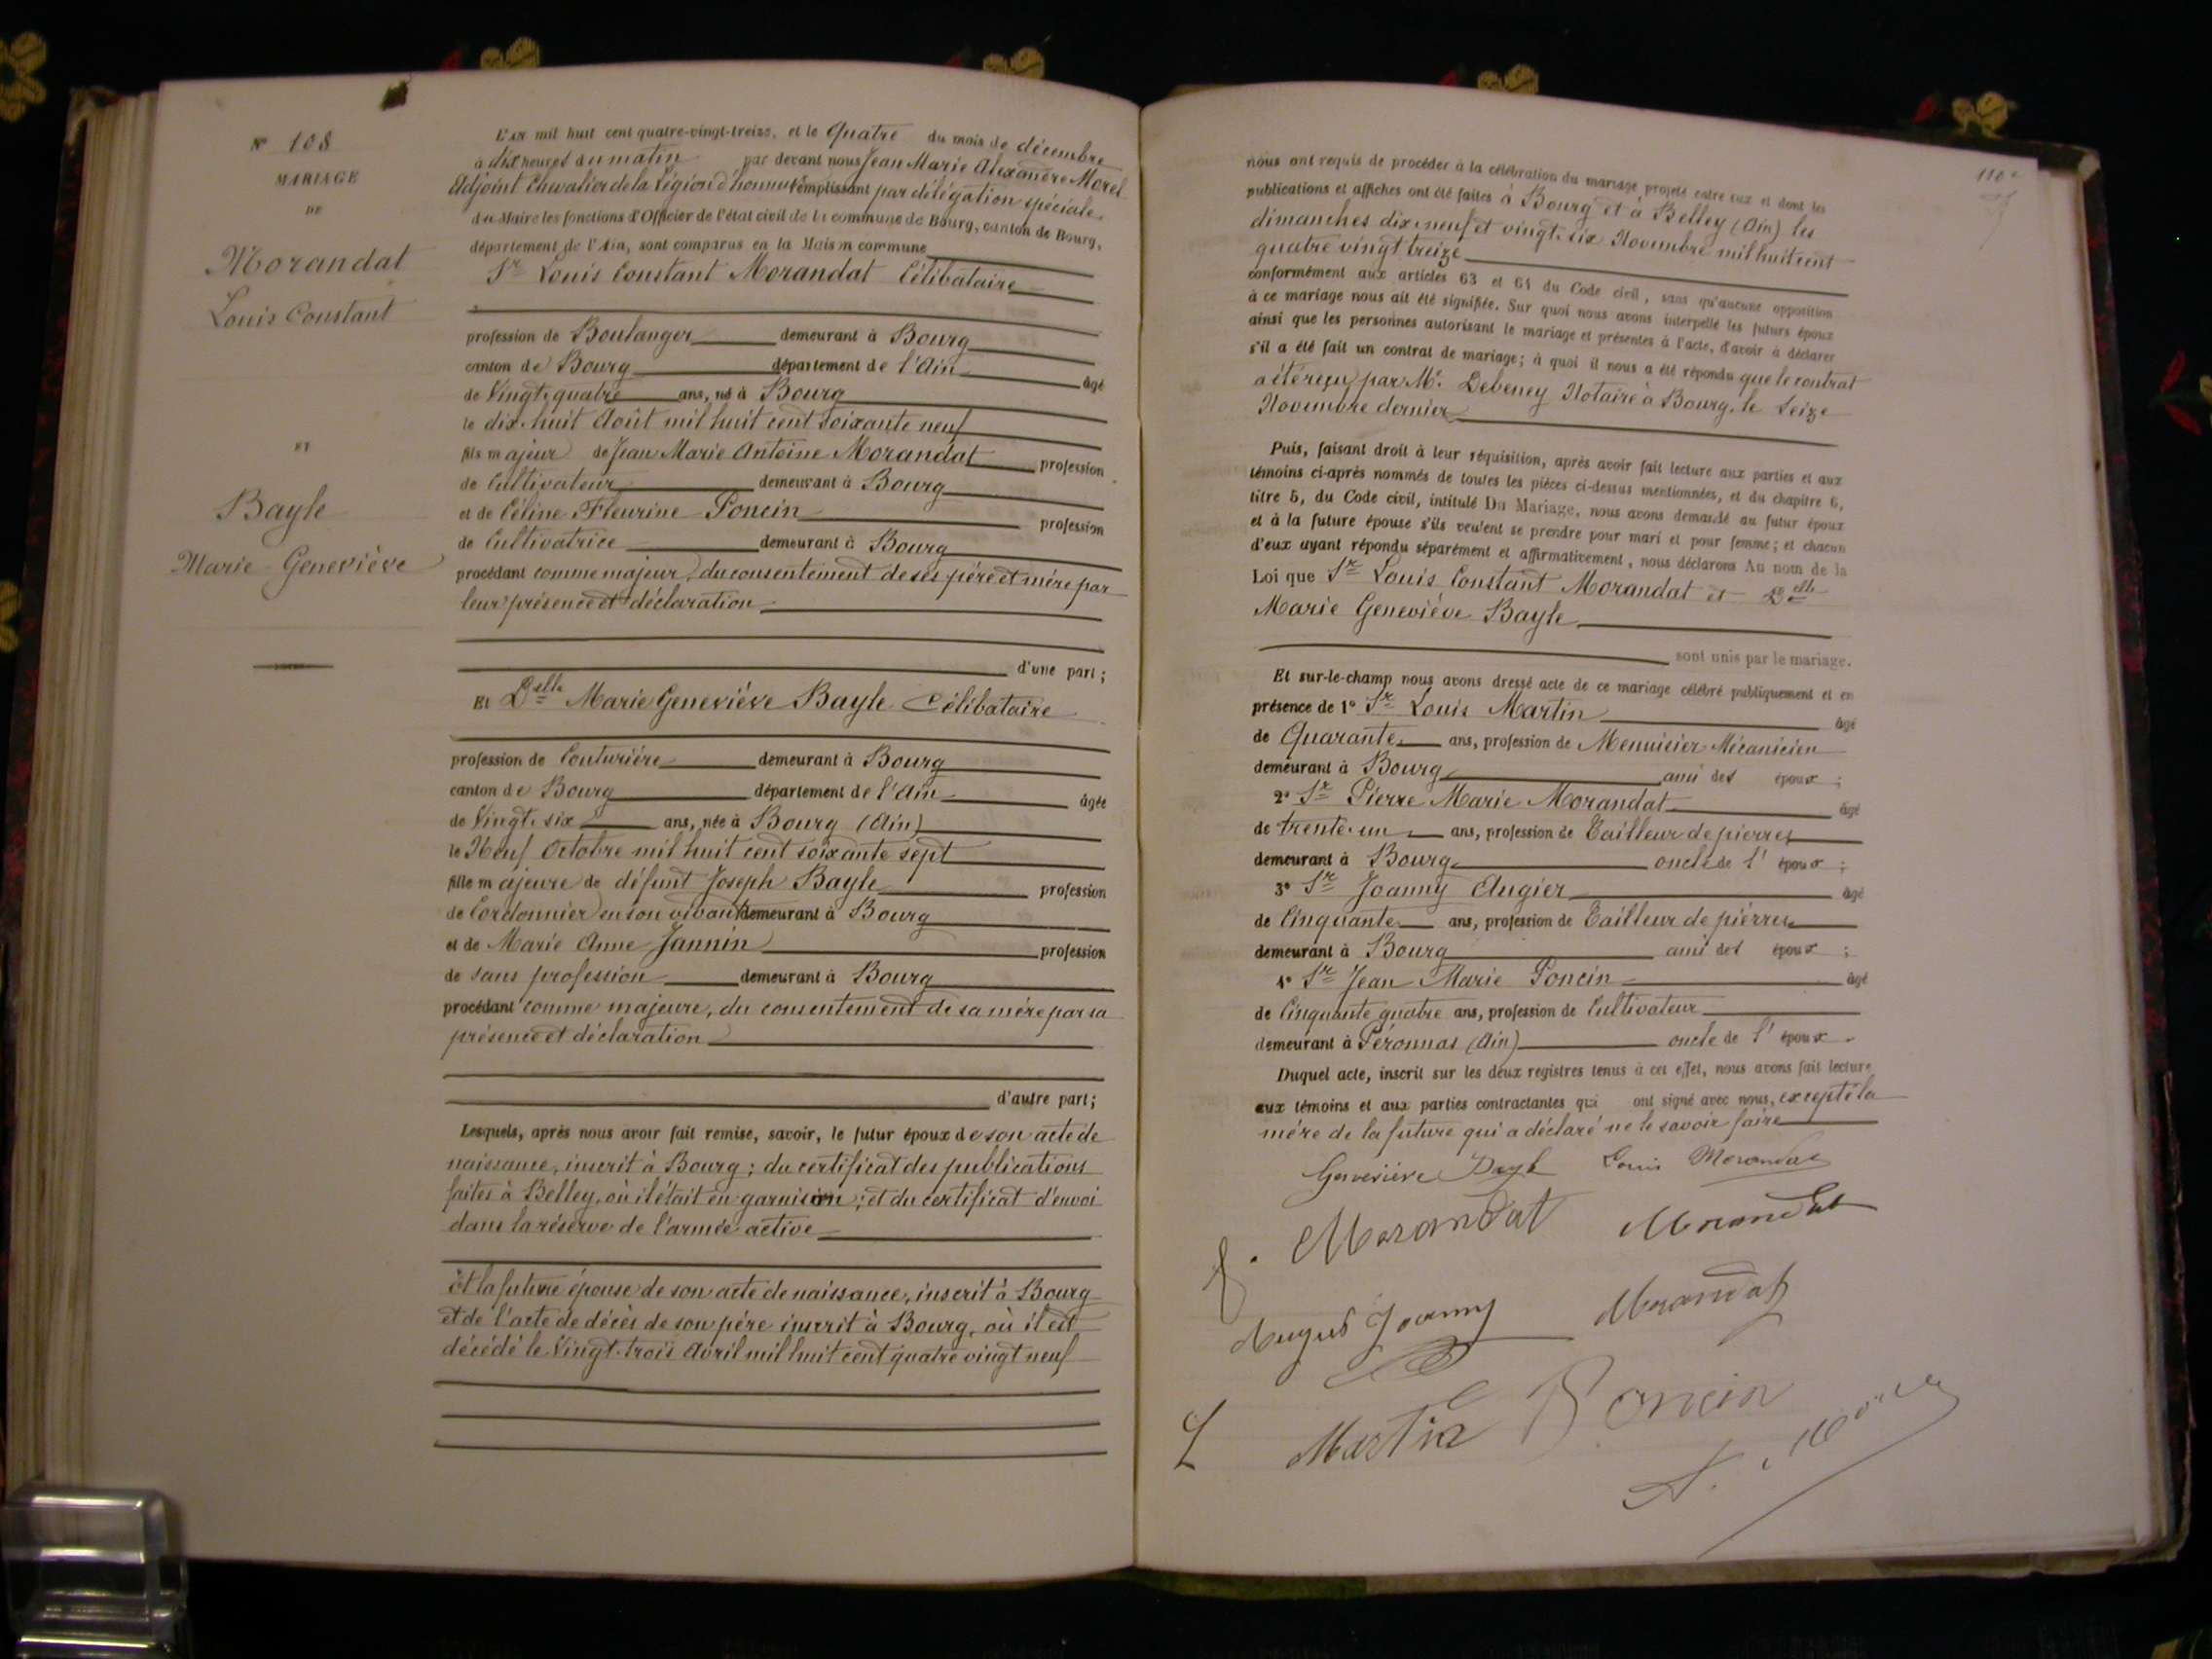 N° 108
MARIAGE
DE
Morandat
Louis Constant
ET
Bayle
Marie Geneviève
L'an mil huit cent quatre-vingt-treize, et le Quatre du mois de décembre
à dix heures du matin par devant nous Jean Marie Alexandre Morel
Adjoint Chevalier de la Légion d'honneur remplissant par délégation spéciale
du Maire les fonctions d'Officier de l'état civil de la commune de Bourg, canton de Bourg,
département de l'Ain, sont comparus en la Maison commune
Sr Louis Constant Morandat Célibataire
profession de Boulanger demeurant à Bourg
canton de Bourg département de l'Ain âgé
de Vingt-quatre ans, né à Bourg
le dix-huit Août mil huit cent soixante neuf
fils majeur de Jean Marie Antoine Morandat profession
de Cultivateur demeurant à Bourg
et de Céline Fleurine Poncin profession
de Cultivatrice demeurant à Bourg
procédant comme majeur, du consentement de ses père et mère par
leur présence et déclaration
d'une part;
Et Delle Marie Geneviève Bayle Célibataire
profession de Couturière demeurant à Bourg
canton de Bourg département de l'Ain âgée
de Vingt-six ans, née à Bourg (Ain)
le Neuf Octobre mil huit cent soixante sept
fille majeure de défunt Joseph Bayle profession
de Cordonnier en son vivant demeurant à Bourg
et de Marie Anne Jannin profession
de sans profession demeurant à Bourg
procédant comme majeure, du consentement de sa mère par sa
présence et déclaration
d'autre part;
Lesquels, après nous avoir fait remise, savoir, le futur époux de son acte de
naissance, inscrit à Bourg; du certificat des publications
faites à Belley, où il était en garnison; et du certificat d'envoi
dans la réserve de l'armée active
Et la future épouse de son acte de naissance, inscrit à Bourg
et de l'acte de décès de son père inscrit à Bourg, où il est
décédé le Vingt-trois Avril mil huit cent quatre vingt neuf
110
nous ont requis de procéder à la célébration du mariage projeté entre eux et dont les
publications et affiches ont été faites à Bourg et à Belley (Ain) les
dimanches dix-neuf et vingt-six Novembre mil huit cent
quatre vingt treize
conformément aux articles 63 et 64 du Code civil, sans qu'aucune opposition
à ce mariage nous ait été signifiée. Sur quoi nous avons interpellé les futurs époux
ainsi que les personnes autorisant le mariage et présentes à l'acte, d'avoir à déclarer
s'il a été fait un contrat de mariage; à quoi il nous a été répondu que le contrat
a été reçu par Me. Debeney Notaire à Bourg, le seize
Novembre dernier
Puis, faisant droit à leur réquisition, après avoir fait lecture aux parties et aux
témoins ci-après nommés de toutes les pièces ci-dessus mentionnées, et du chapitre 6,
titre 5, du Code civil, intitulé Du Mariage, nous avons demandé au futur époux
et à la future épouse s'ils veulent se prendre pour mari et pour femme; et chacun
d'eux ayant répondu séparément et affirmativement, nous déclarons Au nom de la
Loi que Sr Louis Constant Morandat et Delle
Marie Geneviève Bayle
sont unis par le mariage.
Et sur-le-champ nous avons dressé acte de ce mariage célébré publiquement et en
présence de 1° Sr Louis Martin âgé
de Quarante ans, profession de Menuisier Mécanicien
demeurant à Bourg ami des époux;
2° Sr Pierre Marie Morandat âgé
de trente-un ans, profession de Tailleur de pierres
demeurant à Bourg oncle de l'époux;
3° Sr Joanny Augier âgé
de Cinquante ans, profession de Tailleur de pierres
demeurant à Bourg ami des époux;
4° Sr Jean Marie Poncin âgé
de Cinquante quatre ans, profession de Cultivateur
demeurant à Péronnas (Ain) oncle de l'époux.
Duquel acte, inscrit sur les deux registres tenus à cet effet, nous avons fait lecture
aux témoins et aux parties contractantes qui ont signé avec nous, excepté la
mère de la future qui a déclaré ne le savoir faire
Geneviève Bayle Louis Morandat
Morandat Morandat
Joanny Morandat
Martin Poncin